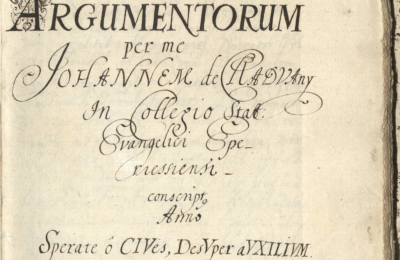 ARGUMENTORUM
per me
JOHANNEM de RADVANY
In Collegio Stat.
Evangelici Epe-
riessiensi
conscript9
Anno
Sperate ô CIVes, DesVper aVXILIVM